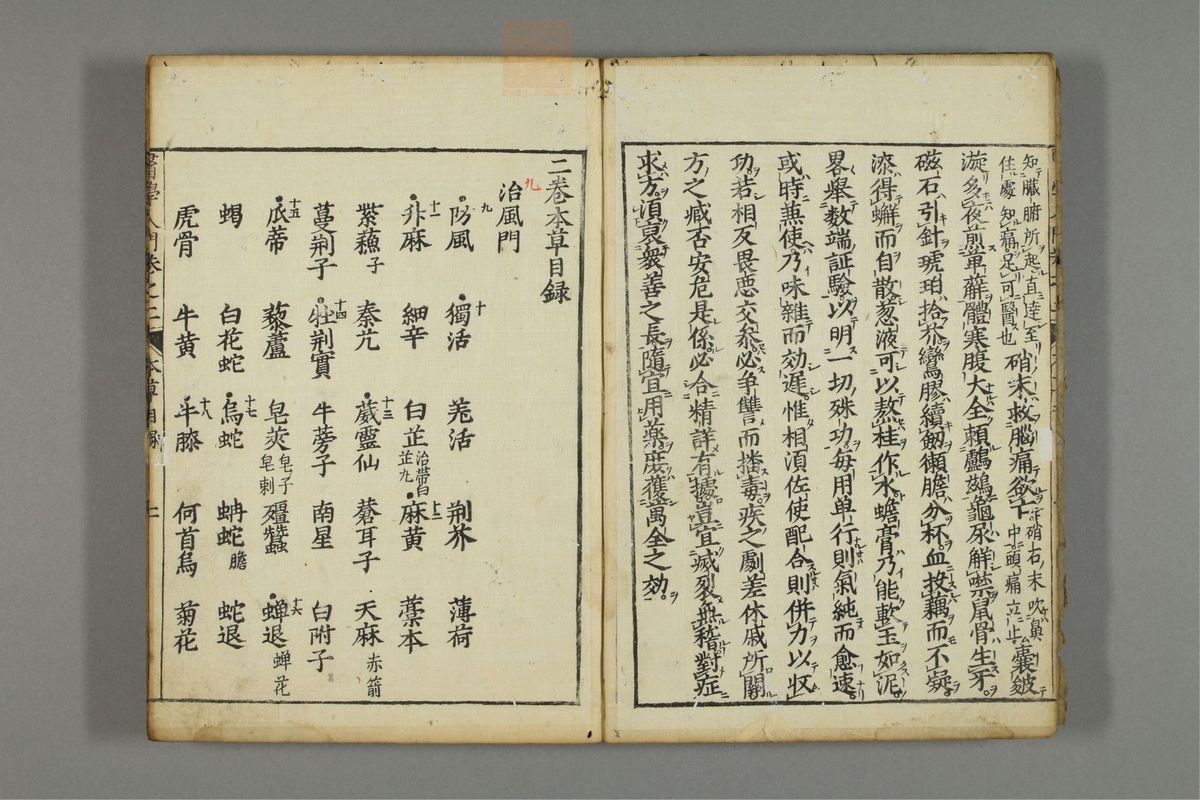 知臟腑所起直達至
佳處知痛足可醫也
硝末救腦痛欲亡
硝石末吹鼻
中頭痛立止
囊皺
漩多夜煎萆薢體寒腹大全賴鸕鷀龜尿解噤鼠骨生牙
磁石引針琥珀拾芥鸞膠續劒獺膽分杯血投藕而不凝
漆得蠏而自散葱液可以熬桂作水蟾膏乃能軟玉如泥
畧舉数端証驗以明一切殊功每用单行則氣純而愈速
或時兼使乃味雜而効遲惟相須佐使配合則併力以収
功若相反畏惡交叅必争讐而播毒疾之劇差休戚所關
方之臧否安危是係必合精詳有據豈宜滅裂無稽對症
求方須裒衆善之長隨宜用藥庶獲萬全之効
二卷本草目録
九
治風門
九
防風
十
獨活
羌活
荆芥
薄荷
十一
升麻
細辛
白芷
治帶白
芷九
十二
麻黄
藁本
紫蘓子
秦艽
十三
葳靈仙
蒼耳子
天麻
赤箭
蔓荆子
十四
牡荆實
牛蒡子
南星
白附子
十五
瓜蒂
藜蘆
皂莢
皂子
皂刺
殭蠶
十六
蝉退
蝉花
蝎
白花蛇
十七
烏蛇
蚺蛇膽
蛇退
虎骨
牛黄
十八
牛膝
何首烏
菊花
醫學入門卷之二
本草目録